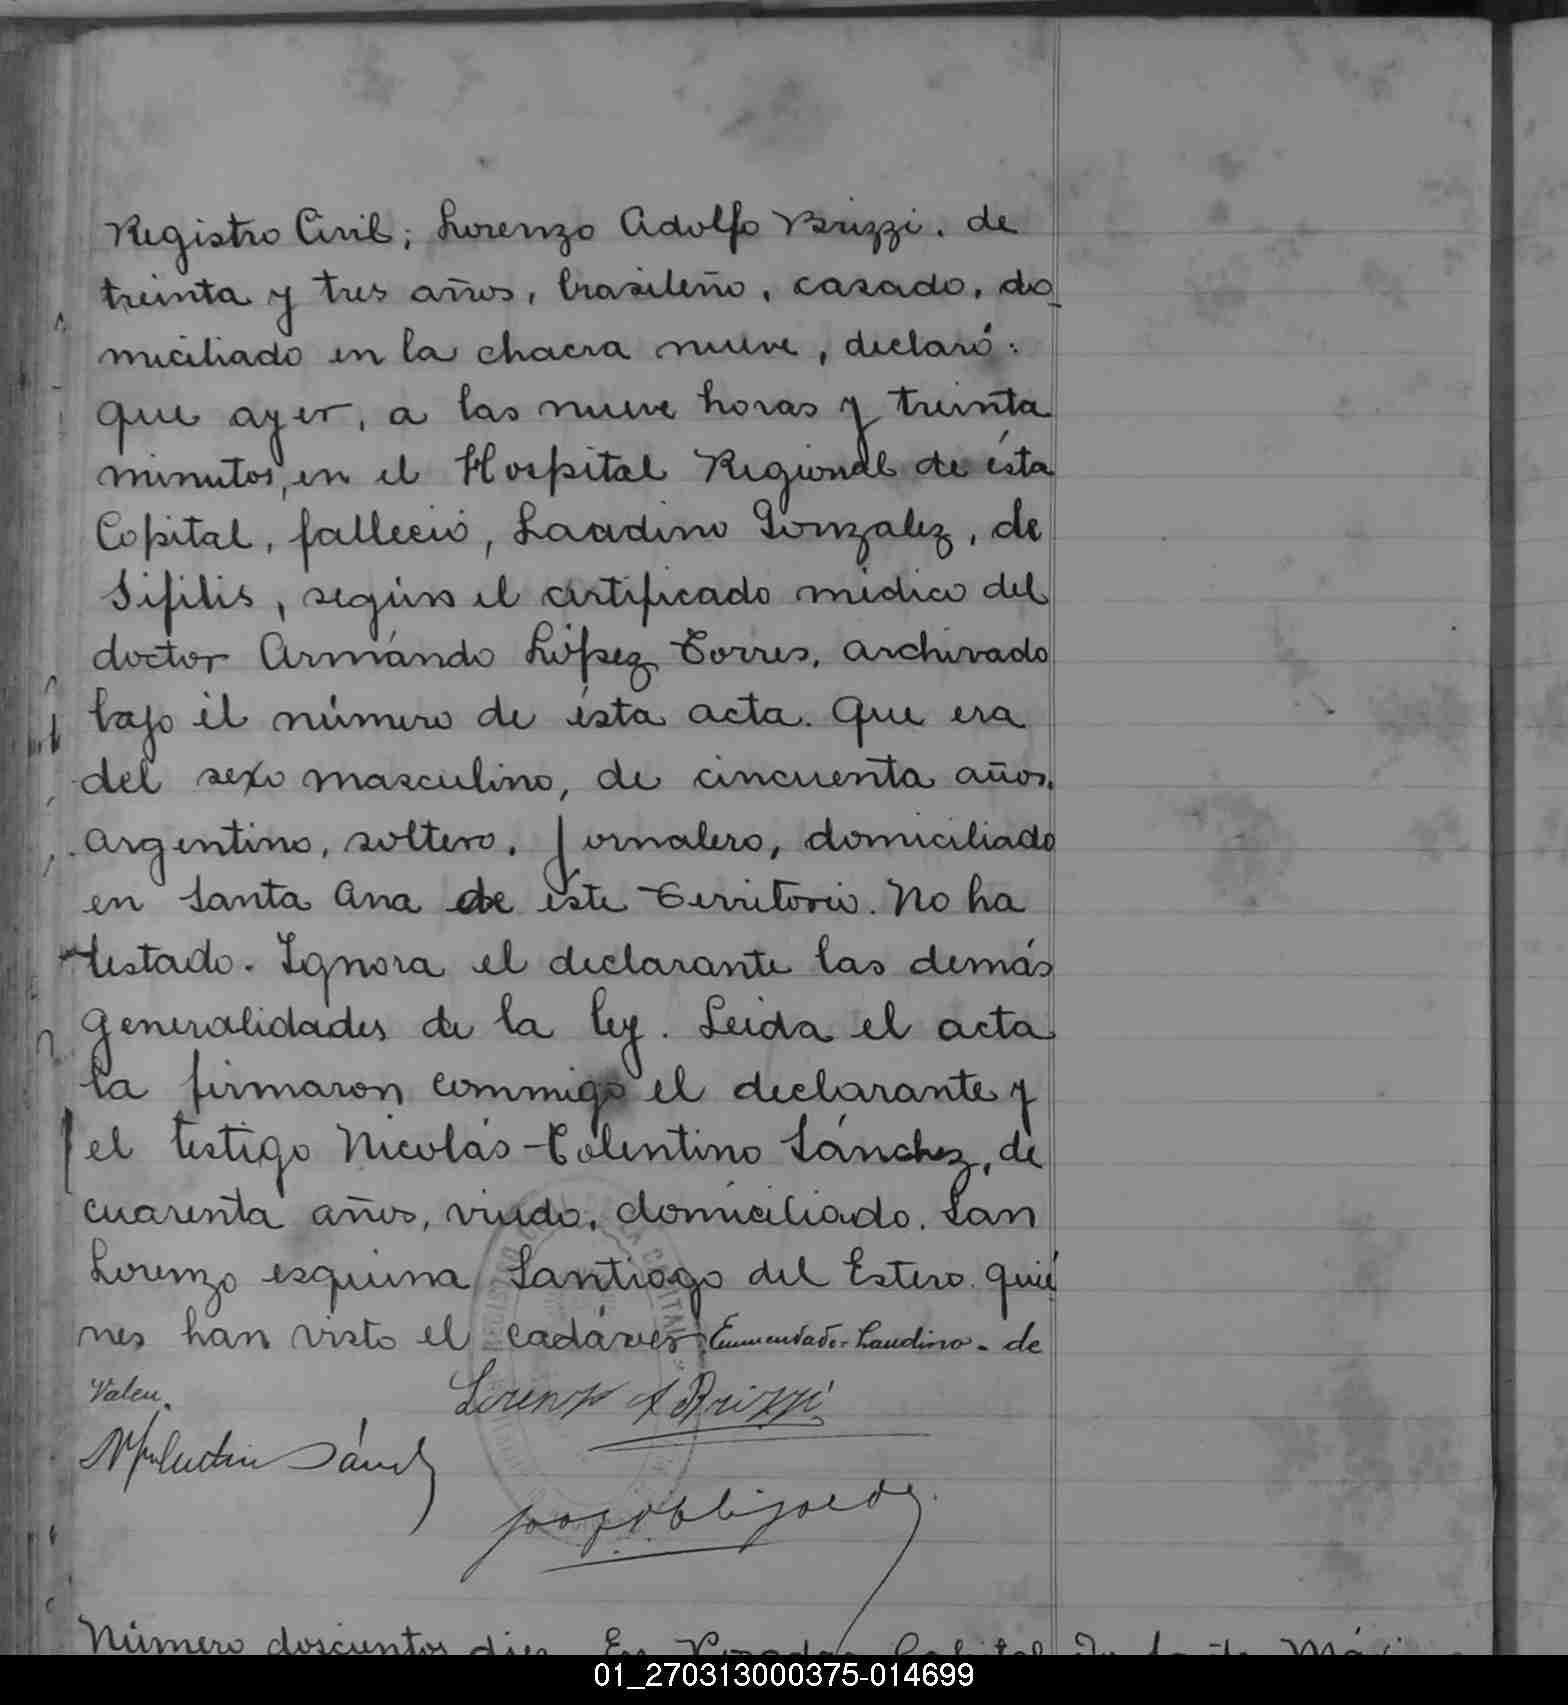 Registro Civil; Lorenzo Adolfo Brizzi, de
treinta y tres años, brasileño, casado, do_
miciliado en la chacra nueve, declaró:
que ayer, a las nueve horas y treinta
minutos, en el Hospital Regional de ésta
Capital, falleció, Laudino Gonzalez, de
Sifilis, según el certificado médico del
doctor Armándo López Torres, archivado
bajo él número de ésta acta. Que era
del sexo masculino, de cincuenta años,
argentino, soltero, jornalero, domiciliado
en Santa Ana de éste Territorio. No ha
testado. Ignora el declarante las demás
generalidades de la ley. Leida el acta
la firmaron conmmigo el declarante y
el testigo Nicolás Tolentino Sánchez, de
cuarenta años, viudo, domiciliado. San
Lorenzo esquina Santiago del Estero. quié
nes han visto el cadáver. Enmendado-Laudino-de
Valen.
Lorenzo A Brizzi
Sánch
Número doscientos diez. En Posadas Capital
01_270313000375-014699